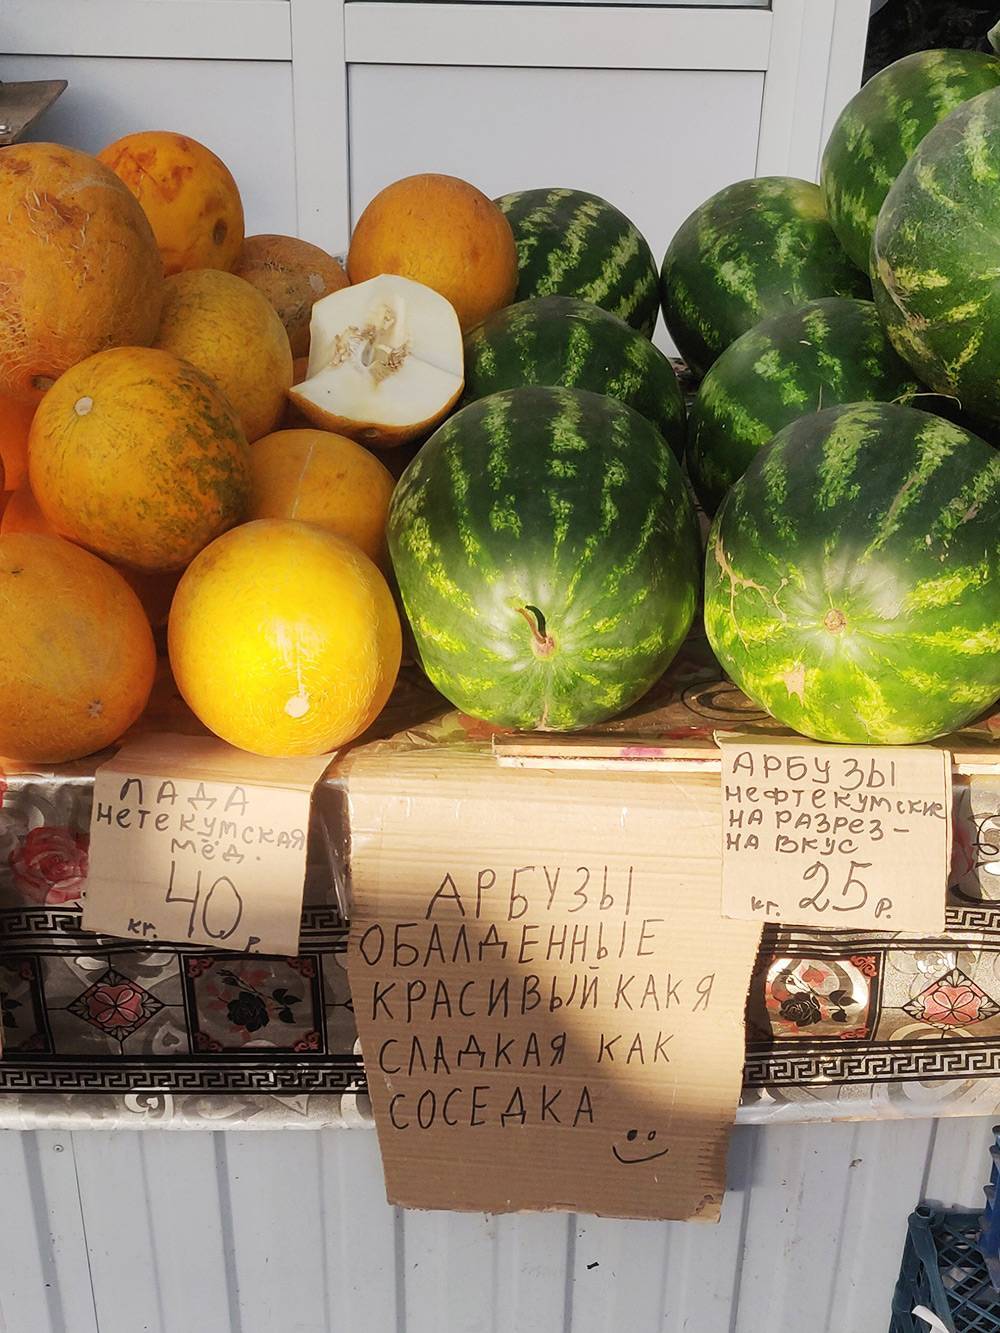 ЛАДА
НЕТЕКУМСКАЯ
МЁД.
кг. 40 Р.
АРБУЗЫ
ОБАЛДЕННЫЕ
КРАСИВЫЙ КАК Я
СЛАДКАЯ КАК
СОСЕДКА
АРБУЗЫ
НЕФТЕКУМСКИЕ
НА РАЗРЕЗ –
НА ВКУС
кг. 25 Р.